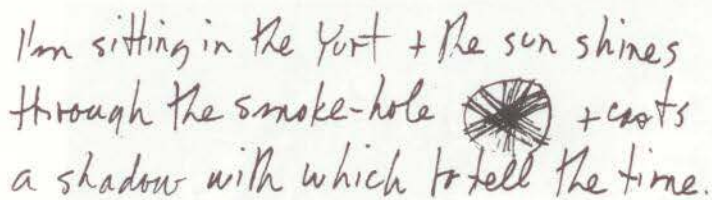 I'm sitting in the Yurt + the sun shines
through the smoke-hole + casts
a shadow with which to tell the time.